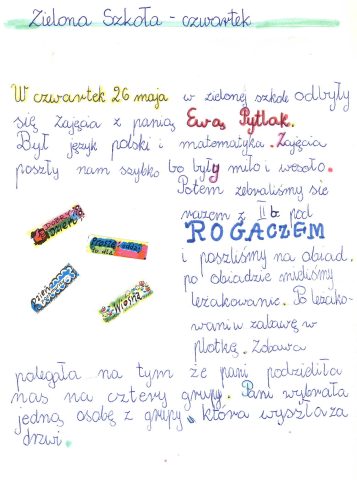 Zielona Szkoła - czwartek
W czwartek 26 maja w zielonej szkole odbyły
się zajęcia z panią Ewą Pytlak.
Był język polski i matematyka. Zajęcia
poszły nam szybko bo były miło i wesoło.
Potem zebraliśmy się
razem z II b pod
ROGACZEM
i poszliśmy na obiad.
po obiedzie mieliśmy
leżakowanie. Po leżako-
waniu zabawę w
plotkę. Zabawa
polegała na tym że pani podzieliła
nas na cztery grupy. Pani wybrała
jedną osobę z grupy, która wyszła za
drzwi.